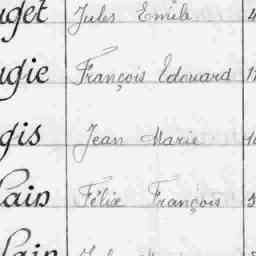 uget Jules Emile 4
ugie François Edouard 11
gis Jean Marie
lain Félix François 5
lain